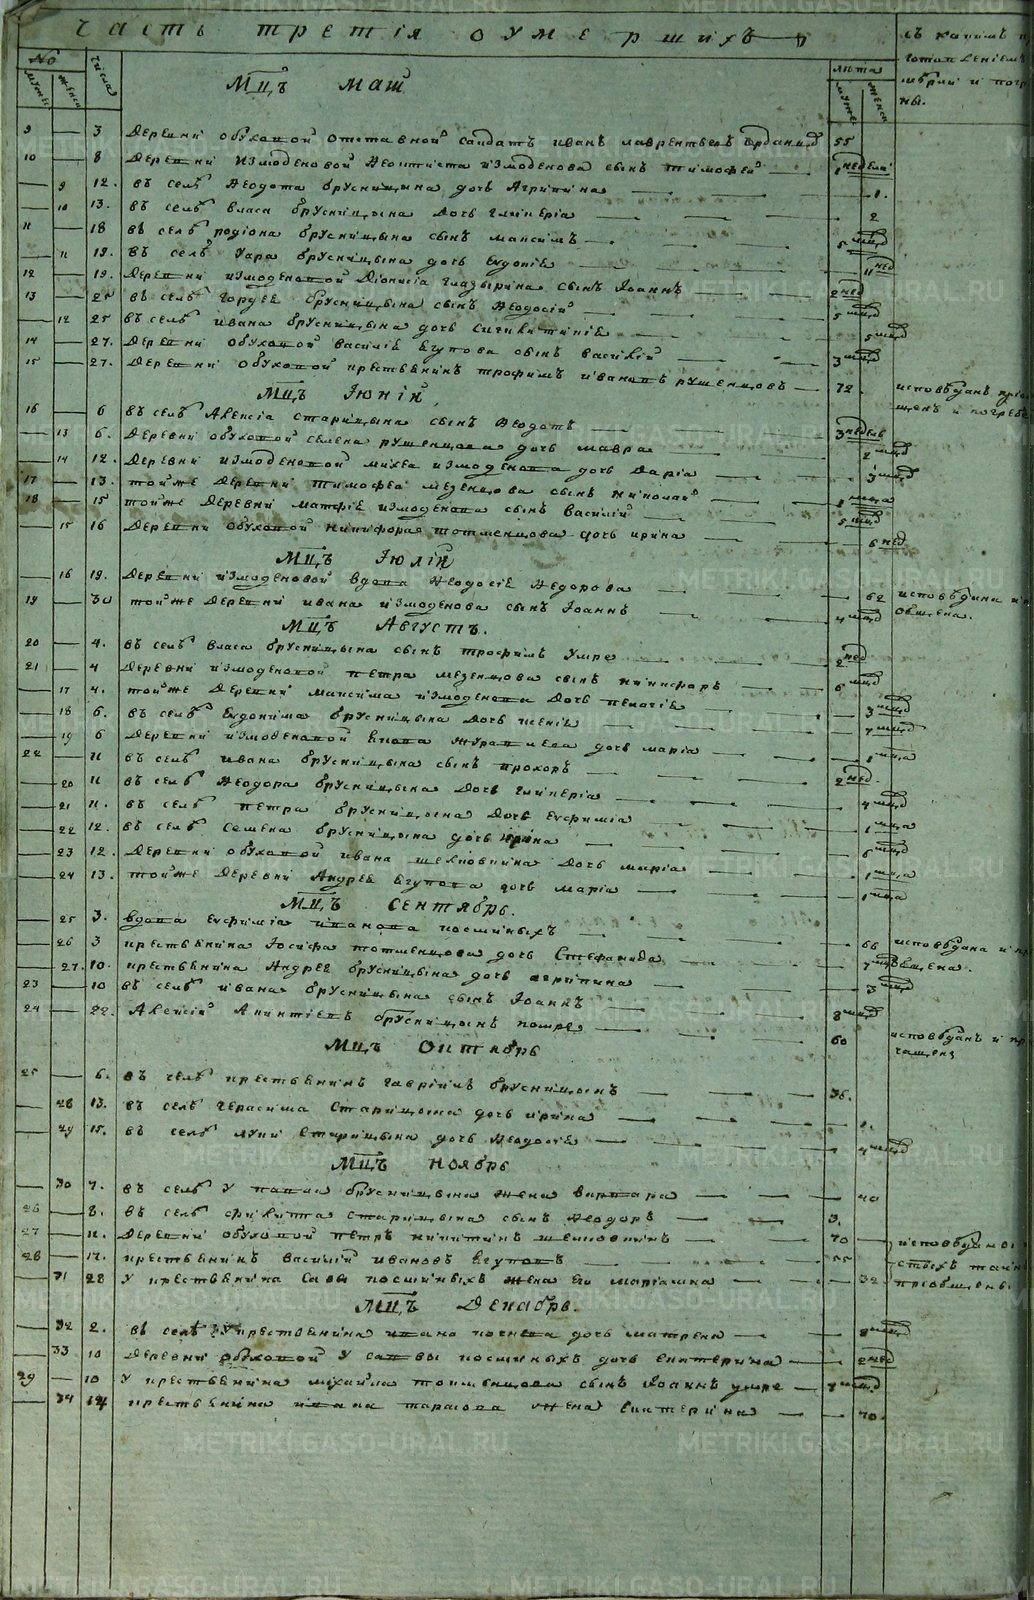 часть третія оумершихъ
съ какимъ
ны.
No
числа
лѣта
мужес
женск
мужес
женска
Мцъ Маій
9 3 Деревни обуховой отставной салдатъ иванъ лаврентьевъ 55
10 8 Деревни измоденовой Ѳеоктиста измоденова сынъ тимофей 1 недели
9 12. въ селѣ Ѳедота брусницына дочь Агрипина 1.
10 13. въ селѣ власа брусницына дочь гликерія 2
11 18 въ селѣ родіона брусницына сынъ максимъ 5 мцд
11 19. въ селѣ уара брусницына дочь евдокіѣ 11 нед
12 19. Деревни измоденовой Діонисіа гладырина сынъ Іоаннъ 2 нед
13 25 въ селѣ гордѣе брусницына сынъ Ѳеодосій 5 мцд
12 25 въ селѣ ивана брусницына дочь 5 мцд
14 27. Деревни обуховой василіѣ Егупова сынъ василій 3 мцд
15 27. Деревни обуховой крестьянинъ трофимъ ивановъ рушенцовъ 72. исповѣданъ
Мцъ Іюній
щенъ и погребе
16 6 въ селѣ Алексіа старицына сынъ Ѳеодотъ 3 недель
13 6. Деревни обуховой семена рушенцова дочь мавра 2 мцд
14 12. Деревни измоденовой михеа измоденова дочь Даріа мцд
17 13. тойже Деревни тимофеа мезенцова сынъ николай 1 мцъа
18 15 тойже Деревни матфіе измоденова сынъ василій 5 мцд
15 16 Деревни обуховой никифора тотменцова дочь ирина 6 нед
Мцъ Іюлій
16 19. Деревни измоденовой вдова Ѳеодосіѣ Ѳедорова 62 исповѣдана и
19 30 тойже Деревни ивана измоденова сынъ Іоаннъ 4 мцд общена.
Мцъ Августъ.
20 4. въ селѣ власа брусницына сынъ трофимъ умре 2 нед
21 4 Деревни измоденовой петра мезенцова сынъ никифоръ 6 мцд
17 4. тойже Деревни максима измоденова дочь пелагіѣ 3 мцд
18 6. въ селѣ Евдокима брусницына дочь ксеніѣ 7 мцд
19 6 Деревни измоденовой Журавлева дочь маріа 1 мцъа
22 11 въ селѣ ивана брусницына сынъ прохоръ 2 нед.
20 11 въ селѣ Ѳеодора брусницына дочь гликеріа 4 мцд
21 11. въ селѣ петра брусницына дочь Евфиміа 1 мцъа
22 12. въ селѣ семена брусницына дочь ирина 6 мцд
23 12. Деревни обуховой ивана шелковкина дочь маріа 1 мцъа
24 13. тойже Деревни Андрее Егупова дочь маріа 1 мцъа
Мцъ Сентябрь.
25 3. вдова Евфиміа иванова косминыхъ 66 исповѣдана и
26 3 крестьянина Іосифа тотменцова дочь Стефанида 7 мцд общена.
27. 10. крестьянина Андрее брусницына дочь агрипина 3 мцд
23 10 въ селѣ ивана брусницына сынъ Іоаннъ 8 мцд
24 22. Алексій Акинтіевъ брусницынъ помре 60 исповѣданъ и
чащенъ
Мцъ Октябрь
25 6. въ селѣ крестьянинъ гаврилъ брусницынъ 36.
28 13. въ селѣ герасима Старицына дочь ирина 1.
29 15. въ селѣ луки Старицына дочь Ѳеодосіѣ 4 мцд
Мцъ Ноябрь
30 7. въ селѣ у павла брусницына жена варвара 40
26 8. въ селѣ филипа старицына сынъ Ѳеодоръ 3.
27 11. Деревни обуховой петръ никитинъ шелковкинъ 70
28 17. крестьянинъ василій ивановъ Егуповъ 55
31 28 у крестьянина савы косминыхъ жена его маріамна 32 пріобщены
Мцъ Декабрь.
32 2. въ селѣ у крестьянина ивана дочь матрена 8 мцд
33 10 Деревни обуховой у саввы косминыхъ дочь екатерина 2 нед
29 10 у крестьянина михайла томенцова сынъ Іоаннъ умре 7 мцд
34 14 крестьянина ивана тарасова жена екатерина 70.